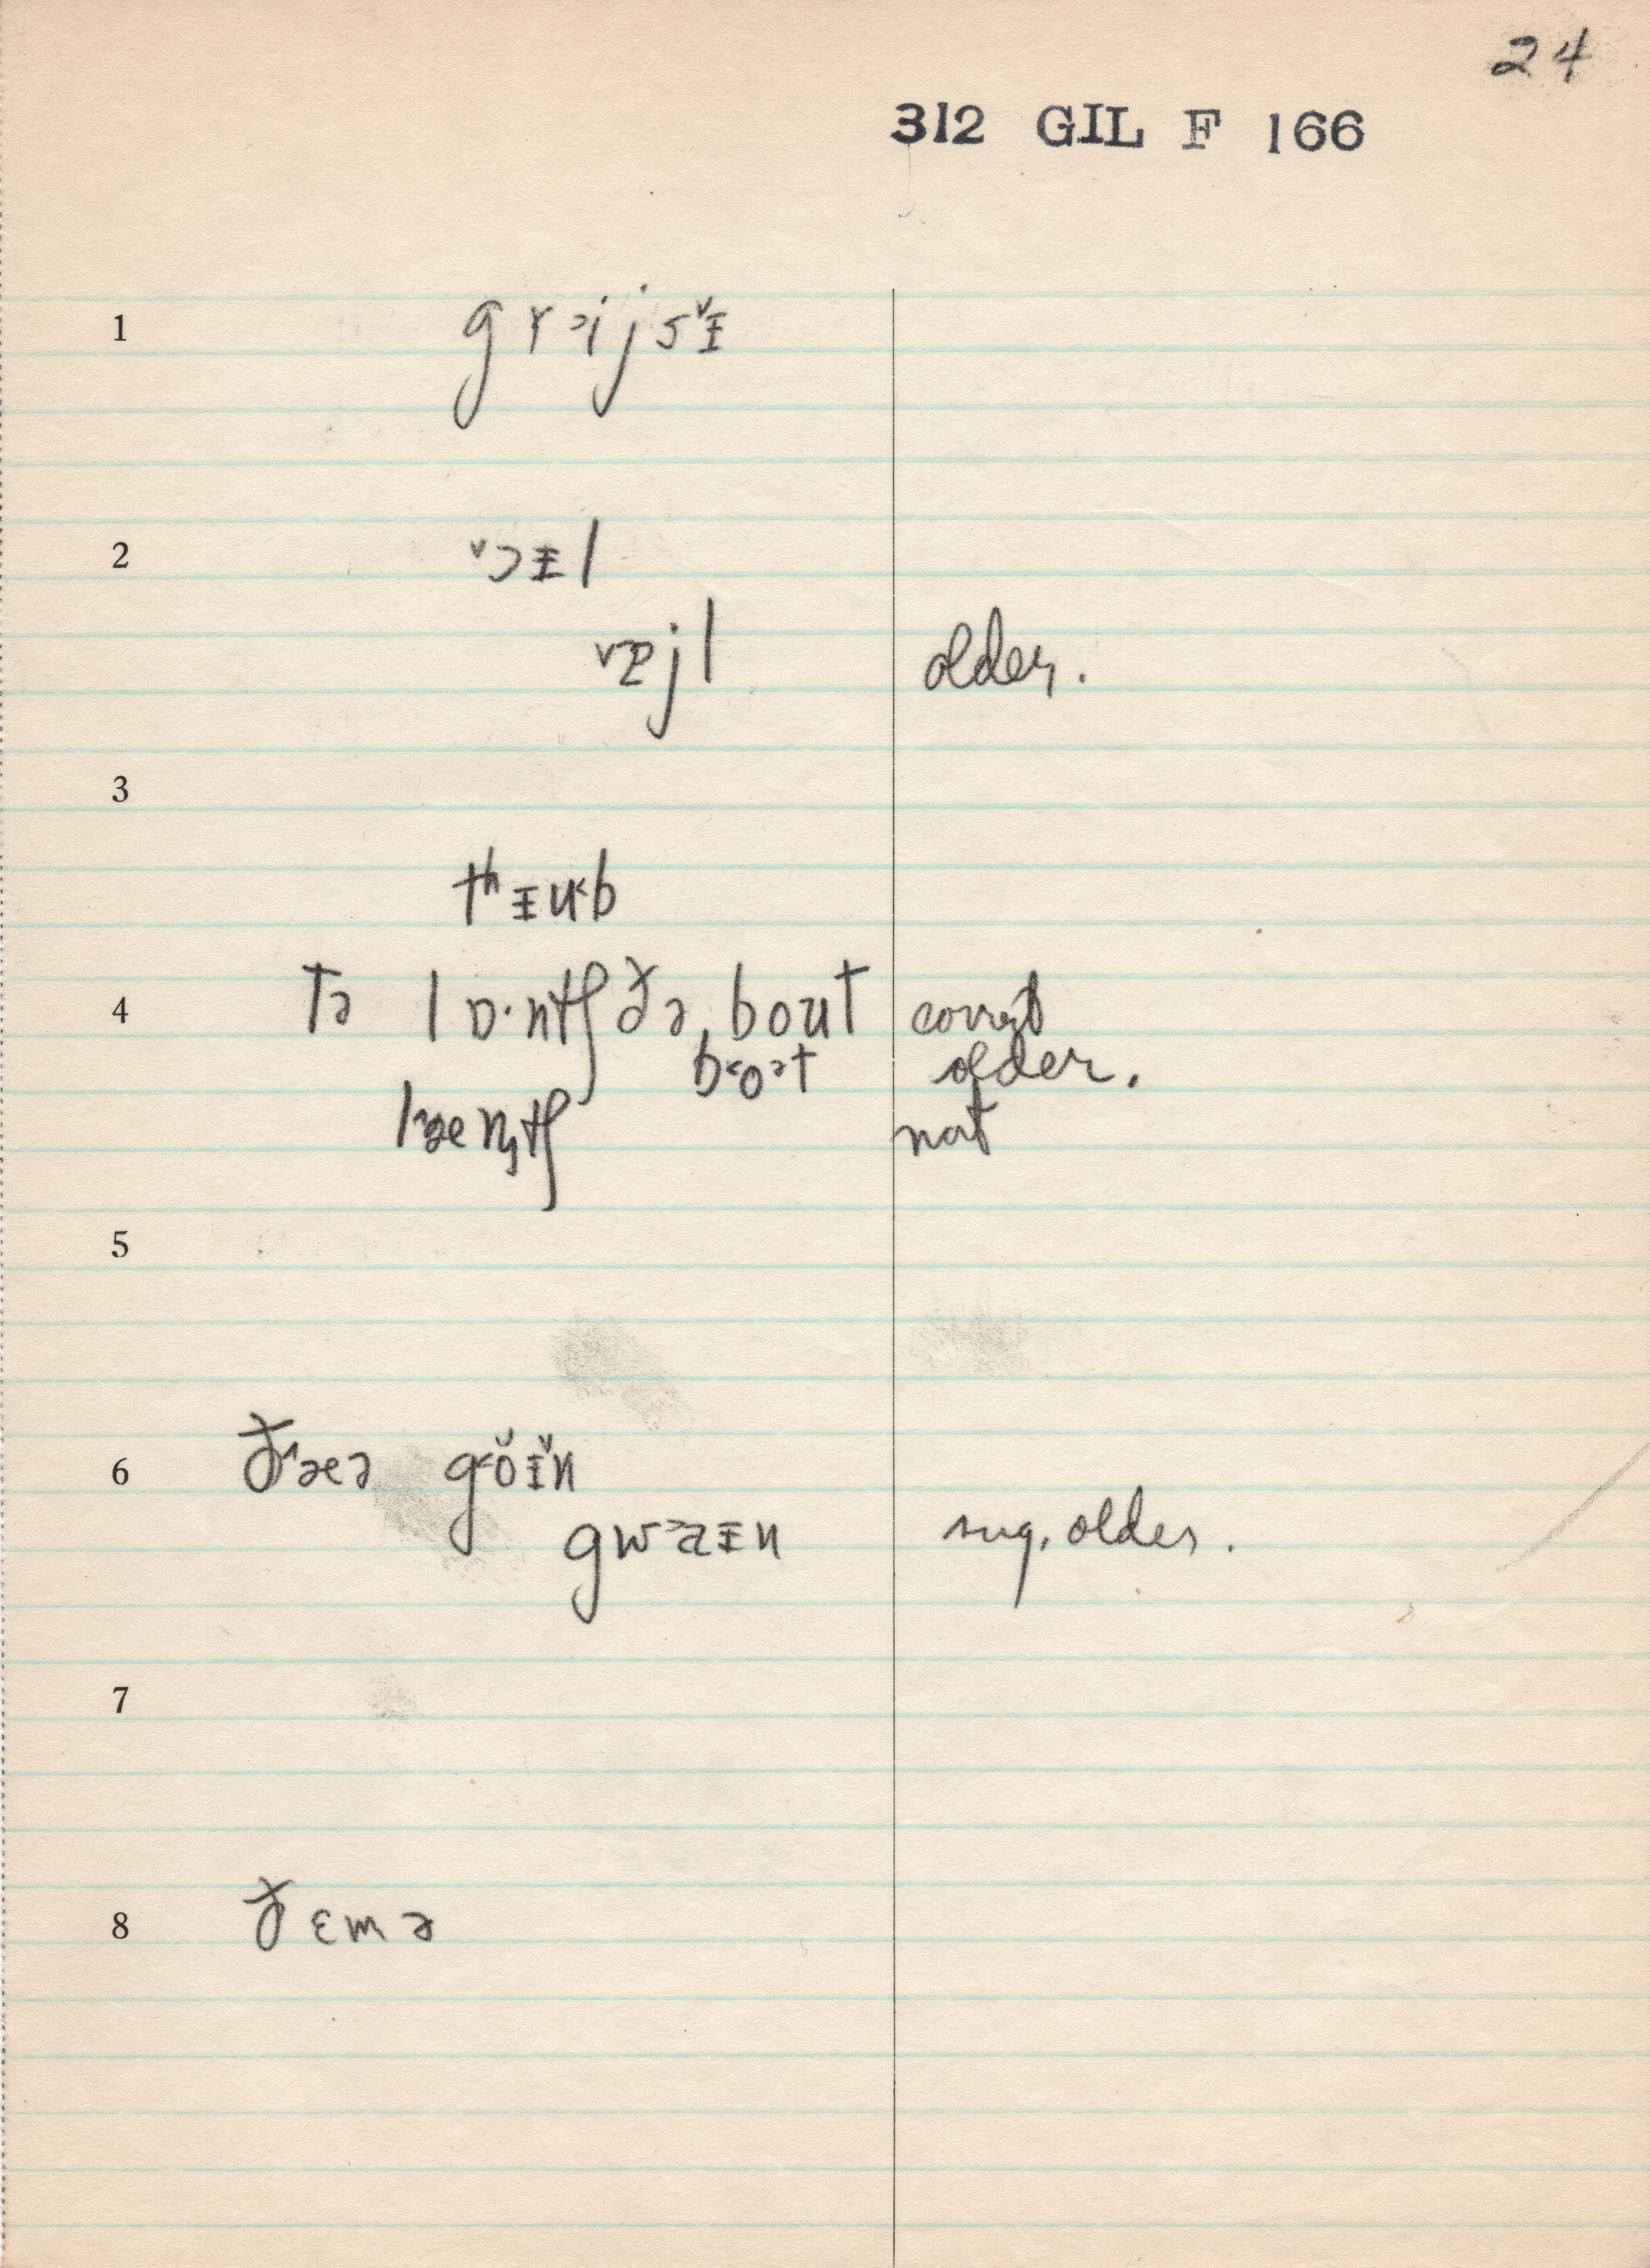 24
312 GIL F 166
1 grɔijsᵛᵻ
2 ᵛɔᵻl
vɐjl older.
3
tʰᵻu˂b
4 tə lɒ·ntʃ ðə bout correct
b˂o˃t older.
l˄æntʃ not
5
6 ð˄æə g˂ŏᵻ̆n
gwɑᵻn sug. older.
7
8 ðɛmə